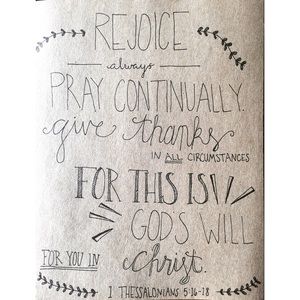 REJOICE
always
PRAY CONTINUALLY.
give thanks
IN ALL CIRCUMSTANCES
FOR THIS IS
GOD'S WILL
FOR YOU IN Christ.
1 THESSALONIANS 5:16-18